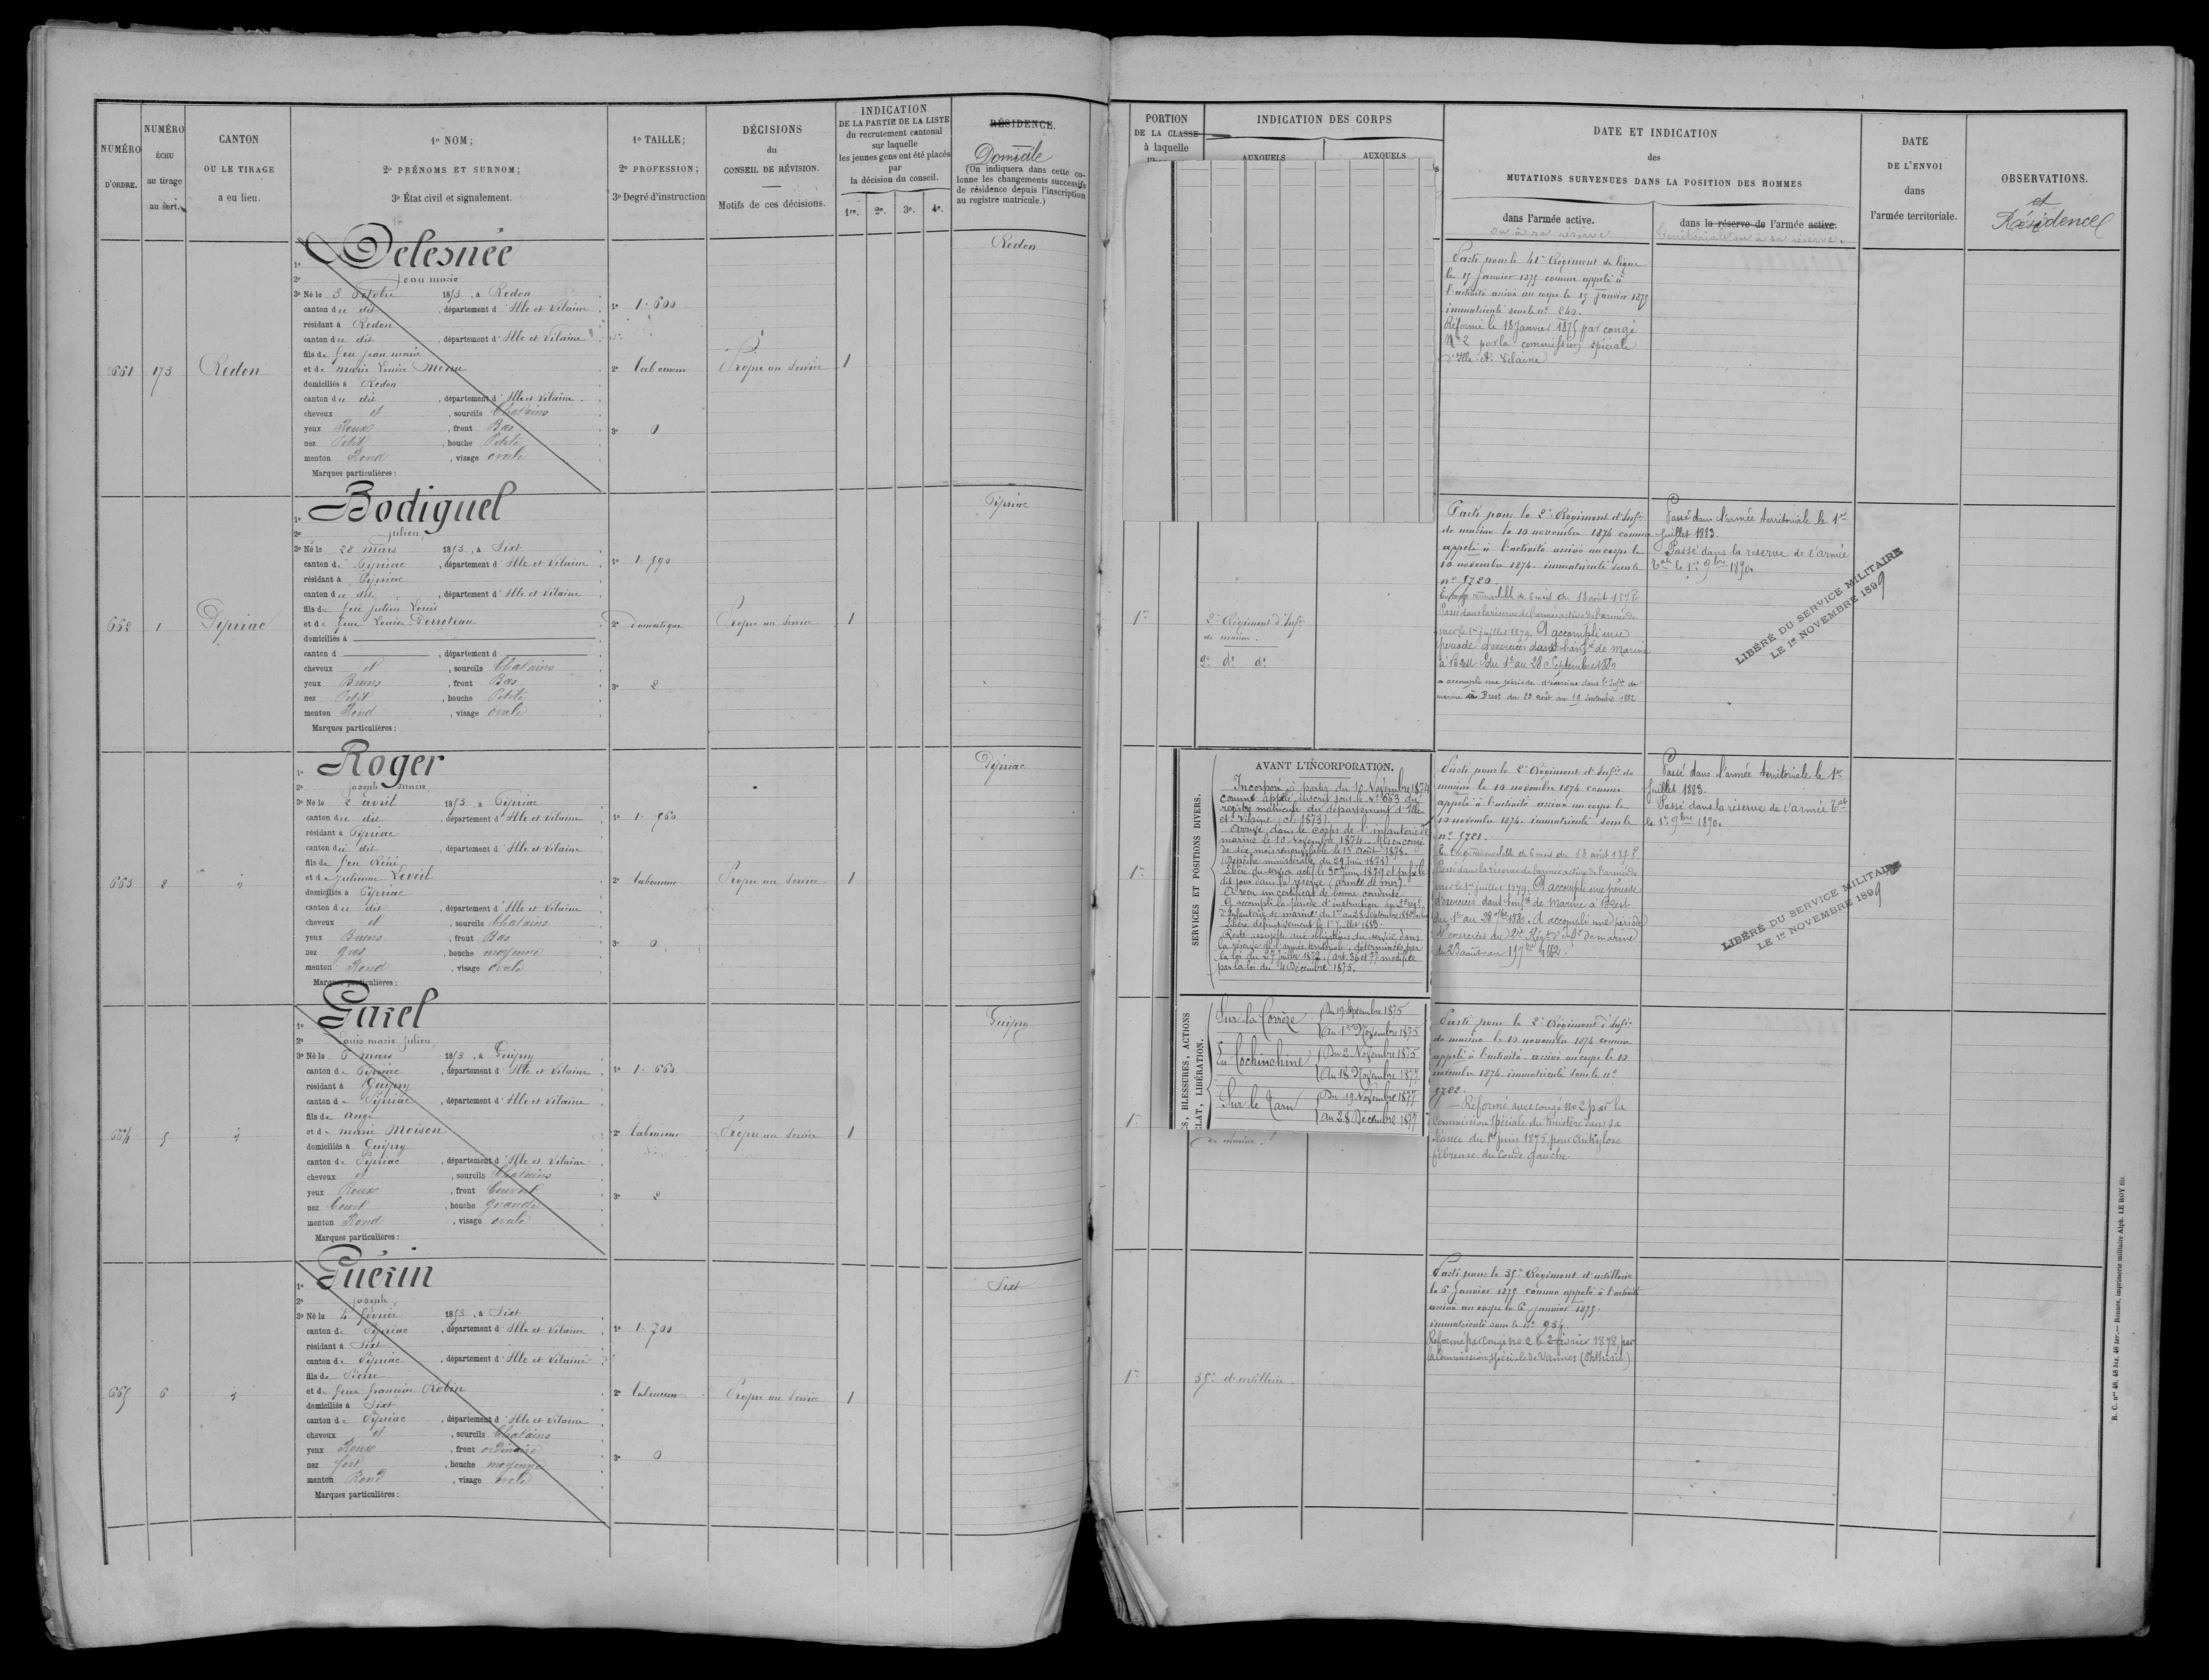 NUMÉRO
D'ORDRE.
NUMÉRO
ÉCHU
au tirage
au sort.
CANTON
OU LE TIRAGE
a eu lieu.
1º NOM;
2º PRÉNOMS ET SURNOM;
3º État civil et signalement.
1º TAILLE;
2º PROFESSION;
3º Degré d'instruction
DÉCISIONS
du
CONSEIL DE RÉVISION.
Motifs de ces décisions.
INDICATION
DE LA PARTIE DE LA LISTE
du recrutement cantonal
sur laquelle
les jeunes gens ont été placés
par
la décision du conseil.
1re. 2e. 3e. 4e.
RÉSIDENCE.
Domicile
(On indiquera dans cette co-
lonne les changements successifs
de résidence depuis l'inscription
au registre matricule.)
661 173 Redon
1º Delesnée
2º Jean marie
3º Né le 3 Octobre 1853, à Redon
canton du dit, département d'Ille et Vilaine
résidant à Redon
canton du dit, département d'Ille et Vilaine
fils de feu jean marie
et de marie Louise
domiciliés à Redon
canton du dit, département d'Ille et Vilaine
cheveux et, sourcils Chatains
yeux Roux, front Bas
nez Petit, bouche Petite
menton Rond, visage ovale
Marques particulières:
1º 1.600
2º laboureur
3º 0
Propre au Service
1
Redon
662 1 Pipriac
1º Bodiguel
2º Julien
3º Né le 28 mars 1853, à Sixt
canton de Pipriac, département d'Ille et Vilaine
résidant à Pipriac
canton du dit, département d'Ille et Vilaine
fils de feu julien Louis
et de feue Louise Perroteau
domiciliés à
canton d, département d
cheveux et, sourcils Chatains
yeux Bruns, front Bas
nez Petit, bouche Petite
menton Rond, visage ovale
Marques particulières:
1º 1.590
2º domestique
3º 2
Propre au Service
1
Pipriac
663 2
1º Roger
2º joseph Marie
3º Né le 2 avril 1853, à Pipriac
canton du dit, département d'Ille et Vilaine
résidant à Pipriac
canton du dit, département d'Ille et Vilaine
fils de feu Réné
et de julienne Leveil
domiciliés à Pipriac
canton du dit, département d'Ille et Vilaine
cheveux et, sourcils Chatains
yeux Bruns, front Bas
nez gros, bouche moyenne
menton Rond, visage ovale
Marques particulières:
1º 1.560
2º laboureur
3º 0
Propre au Service
1
Pipriac
664 5
1º Garel
2º Louis marie Julien
3º Né le 6 mars 1853, à Guipry
canton de Pipriac, département d'Ille et Vilaine
résidant à Guipry
canton de Pipriac, département d'Ille et Vilaine
fils de ange
et de marie Moison
domiciliés à Guipry
canton de Pipriac, département d'Ille et Vilaine
cheveux et, sourcils Chatains
yeux Roux, front Couvert
nez Court, bouche grande
menton Rond, visage ovale
Marques particulières:
1º 1.660
2º laboureur
3º 2
Propre au Service
1
Guipry
665 6
1º Guérin
2º joseph
3º Né le 4 février 1853, à Sixt
canton de Pipriac, département d'Ille et Vilaine
résidant à Sixt
canton de Pipriac, département d'Ille et Vilaine
fils de Pierre
et de feue françoise Robin
domiciliés à Sixt
canton de Pipriac, département d'Ille et Vilaine
cheveux et, sourcils Chatains
yeux Roux, front ordinaire
nez fort, bouche moyenne
menton Rond, visage ovale
Marques particulières:
1º 1.700
2º laboureur
3º 0
Propre au Service
1
Sixt
PORTION
DE LA CLASSE
à laquelle
INDICATION DES CORPS
AUXQUELS
AUXQUELS
DATE ET INDICATION
des
MUTATIONS SURVENUES DANS LA POSITION DES HOMMES
dans l'armée active.
ou à sa réserve
dans la réserve de l'armée active.
territoriale ou à sa réserve.
DATE
DE L'ENVOI
dans
l'armée territoriale.
OBSERVATIONS.
et
Résidence
Parti pour le 41e Régiment de ligne
le 15 Janvier 1875 comme appelé à
l'activité arrivé au corps le 15 Janvier 1875
immatriculé sous le nº 240.
Réformé le 18 Janvier 1875 par congé
Nº 2 par la commission spéciale
d'Ille-et-Vilaine
1re
2e Régiment d'Infie
de marine.
2e dº dº
Parti pour le 2e Régiment d'Infie
de marine le 10 novembre 1874 comme
appelé à l'activité arrivé au corps le
10 novembre 1874. immatriculé sous le
nº 5720.
En congé renouvelable de 6 mois du 13 août 1878
Passé dans la réserve de l'armée active de l'armée de
mer le 1er juillet 1879. A accompli une
période d'exercices dans l'infie de marine
à Brest du 1er au 28 Septembre 1880
a accompli une période d'exercices dans l'Infie de
marine à Brest du 23 août au 19 Septembre 1882
Passé dans l'armée territoriale le 1er
Juillet 1883.
Passé dans la réserve de l'armée
tale le 1er 9bre 1890.
LIBÉRÉ DU SERVICE MILITAIRE
LE 1er NOVEMBRE 1899
1re
SERVICES ET POSITIONS DIVERS.
AVANT L'INCORPORATION.
Incorporé à partir du 10 Novembre 1874
comme appelé, inscrit sous le Nº 663 du
registre matricule du département d'Ille-
et-Vilaine (cl. 1873)
Arrivé dans le corps de l'infanterie de
marine le 10 Novembre 1874. Mis en congé
de six mois renouvelable le 13 Août 1878.
(Dépêche ministérielle du 29 Juin 1878)
Libéré du service actif le 30 Juin 1879 et passé le
dit jour dans la réserve (armée de mer).
A reçu un certificat de bonne conduite.
A accompli la période d'instruction au 2e régt
d'Infanterie de marine du 1er au 28 Septembre 1880
Libéré définitivement le 1er Juillet 1883.
Reste assujetti aux obligations du service dans
la réserve de l'armée territoriale, déterminées par
la loi du 27 Juillet 1872. (art. 36 et 77 modifiée
par la loi du 4 Décembre 1875.
Parti pour le 2e Régiment d'Infie de
marine le 10 novembre 1874 comme
appelé à l'activité arrivé au corps le
10 novembre 1874. immatriculé sous le
nº 5721.
En congé renouvelable de 6 mois du 13 août 1878
Passé dans la réserve de l'armée active de l'armée de
mer le 1er juillet 1879. A accompli une période
d'exercices dans l'infie de Marine à Brest
du 1er au 28 7bre 1880. A accompli une période
d'exercices au 2e Régt d'Infie de marine
du 23 août au 19 7bre 1882.
Passé dans l'armée territoriale le 1er
Juillet 1883.
Passé dans la réserve de l'armée tale
le 1er 9bre 1890.
LIBÉRÉ DU SERVICE MILITAIRE
LE 1er NOVEMBRE 1899
1re
S, BLESSURES, ACTIONS
CLAT, LIBÉRATION.
Sur la Corrèze { Du 19 Septembre 1875
{ Au 1er Novembre 1875
En Cochinchine { Du 2 Novembre 1875
{ Au 18 Novembre 1877
Sur le Tarn { Du 19 Novembre 1877
{ au 28 Décembre 1877
de marine.
Parti pour le 2e Régiment d'Infie
de marine le 10 novembre 1874 comme
appelé à l'activité arrivé au corps le 10
novembre 1874. immatriculé sous le nº
5722.
Réformé avec congé nº 2 par la
Commission Spéciale du Finistère dans sa
séance du 1er juin 1875 pour Ankylose
fibreuse du coude gauche
1re
35e d'artillerie.
Parti pour le 35e Régiment d'artillerie
le 6 Janvier 1875 comme appelé à l'activité
arrivé au corps le 6 Janvier 1875.
immatriculé sous le nº 934.
Réformé par congé nº 2 le 2 février 1878 par
la Commission Spéciale de Vannes (Phthisie)
R. C. nos 48, 48 bis, 48 ter. — Rennes, imprimerie militaire Alph. LE ROY fils